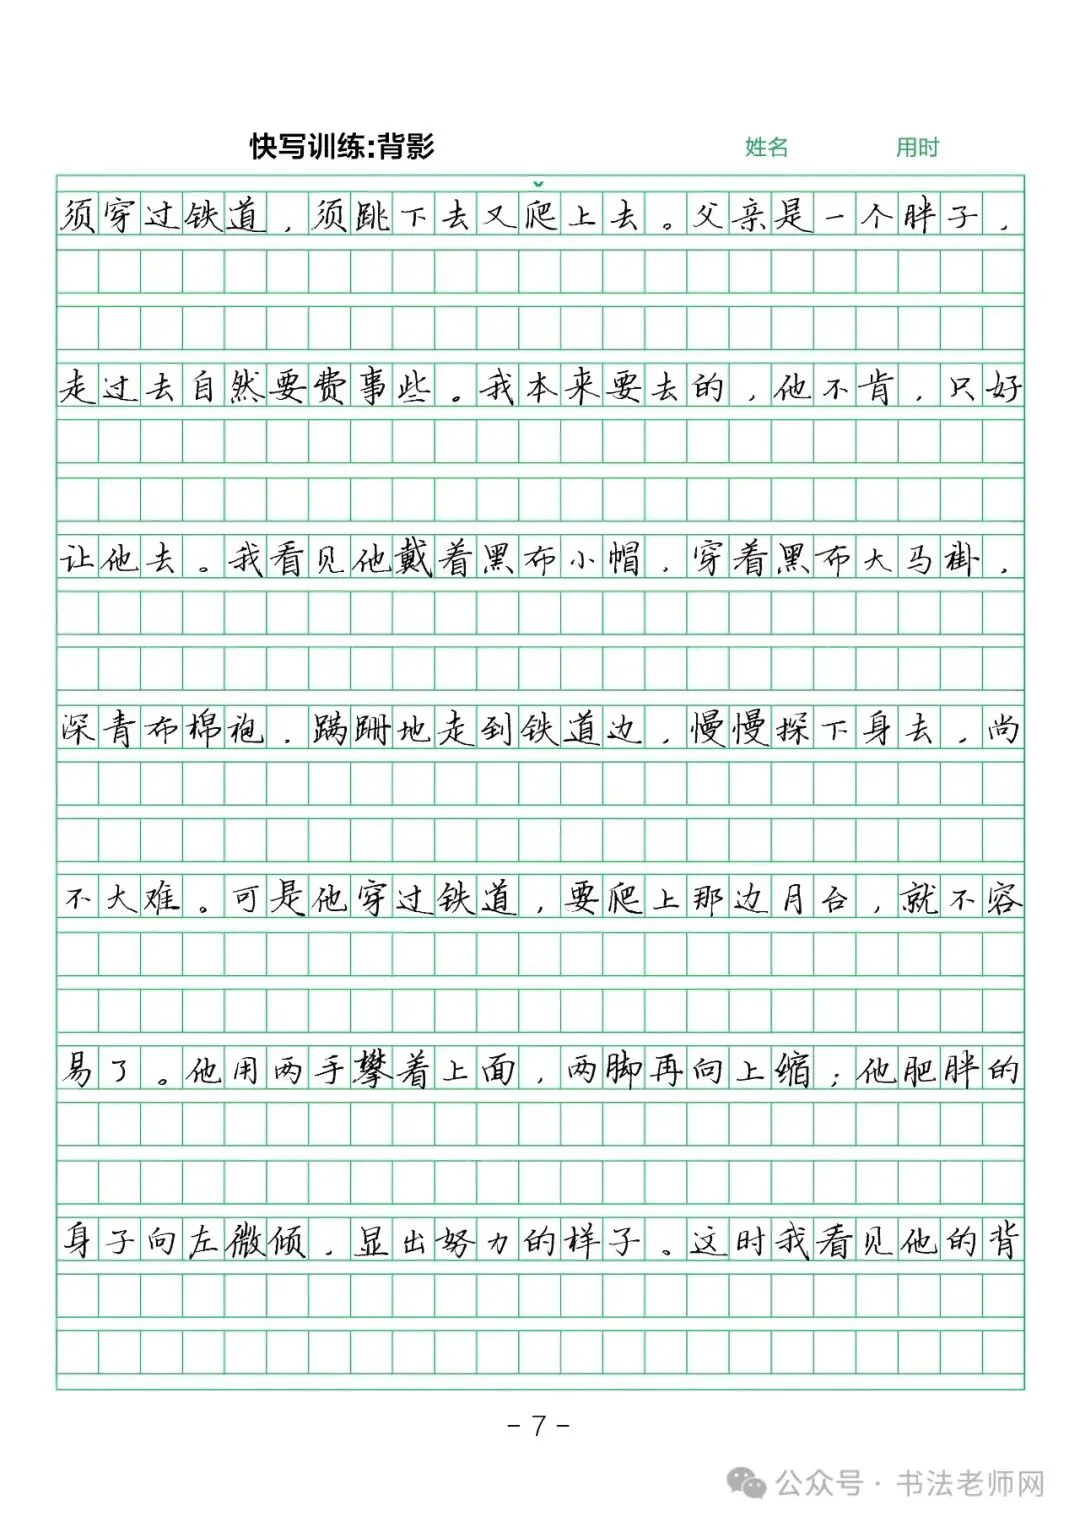 快写训练:背影 姓名 用时
须穿过铁道，须跳下去又爬上去。父亲是一个胖子，
走过去自然要费事些。我本来要去的，他不肯，只好
让他去。我看见他戴着黑布小帽，穿着黑布大马褂，
深青布棉袍，蹒跚地走到铁道边，慢慢探下身去，尚
不大难。可是他穿过铁道，要爬上那边月台，就不容
易了。他用两手攀着上面，两脚再向上缩；他肥胖的
身子向左微倾，显出努力的样子。这时我看见他的背
- 7 -
公众号 · 书法老师网